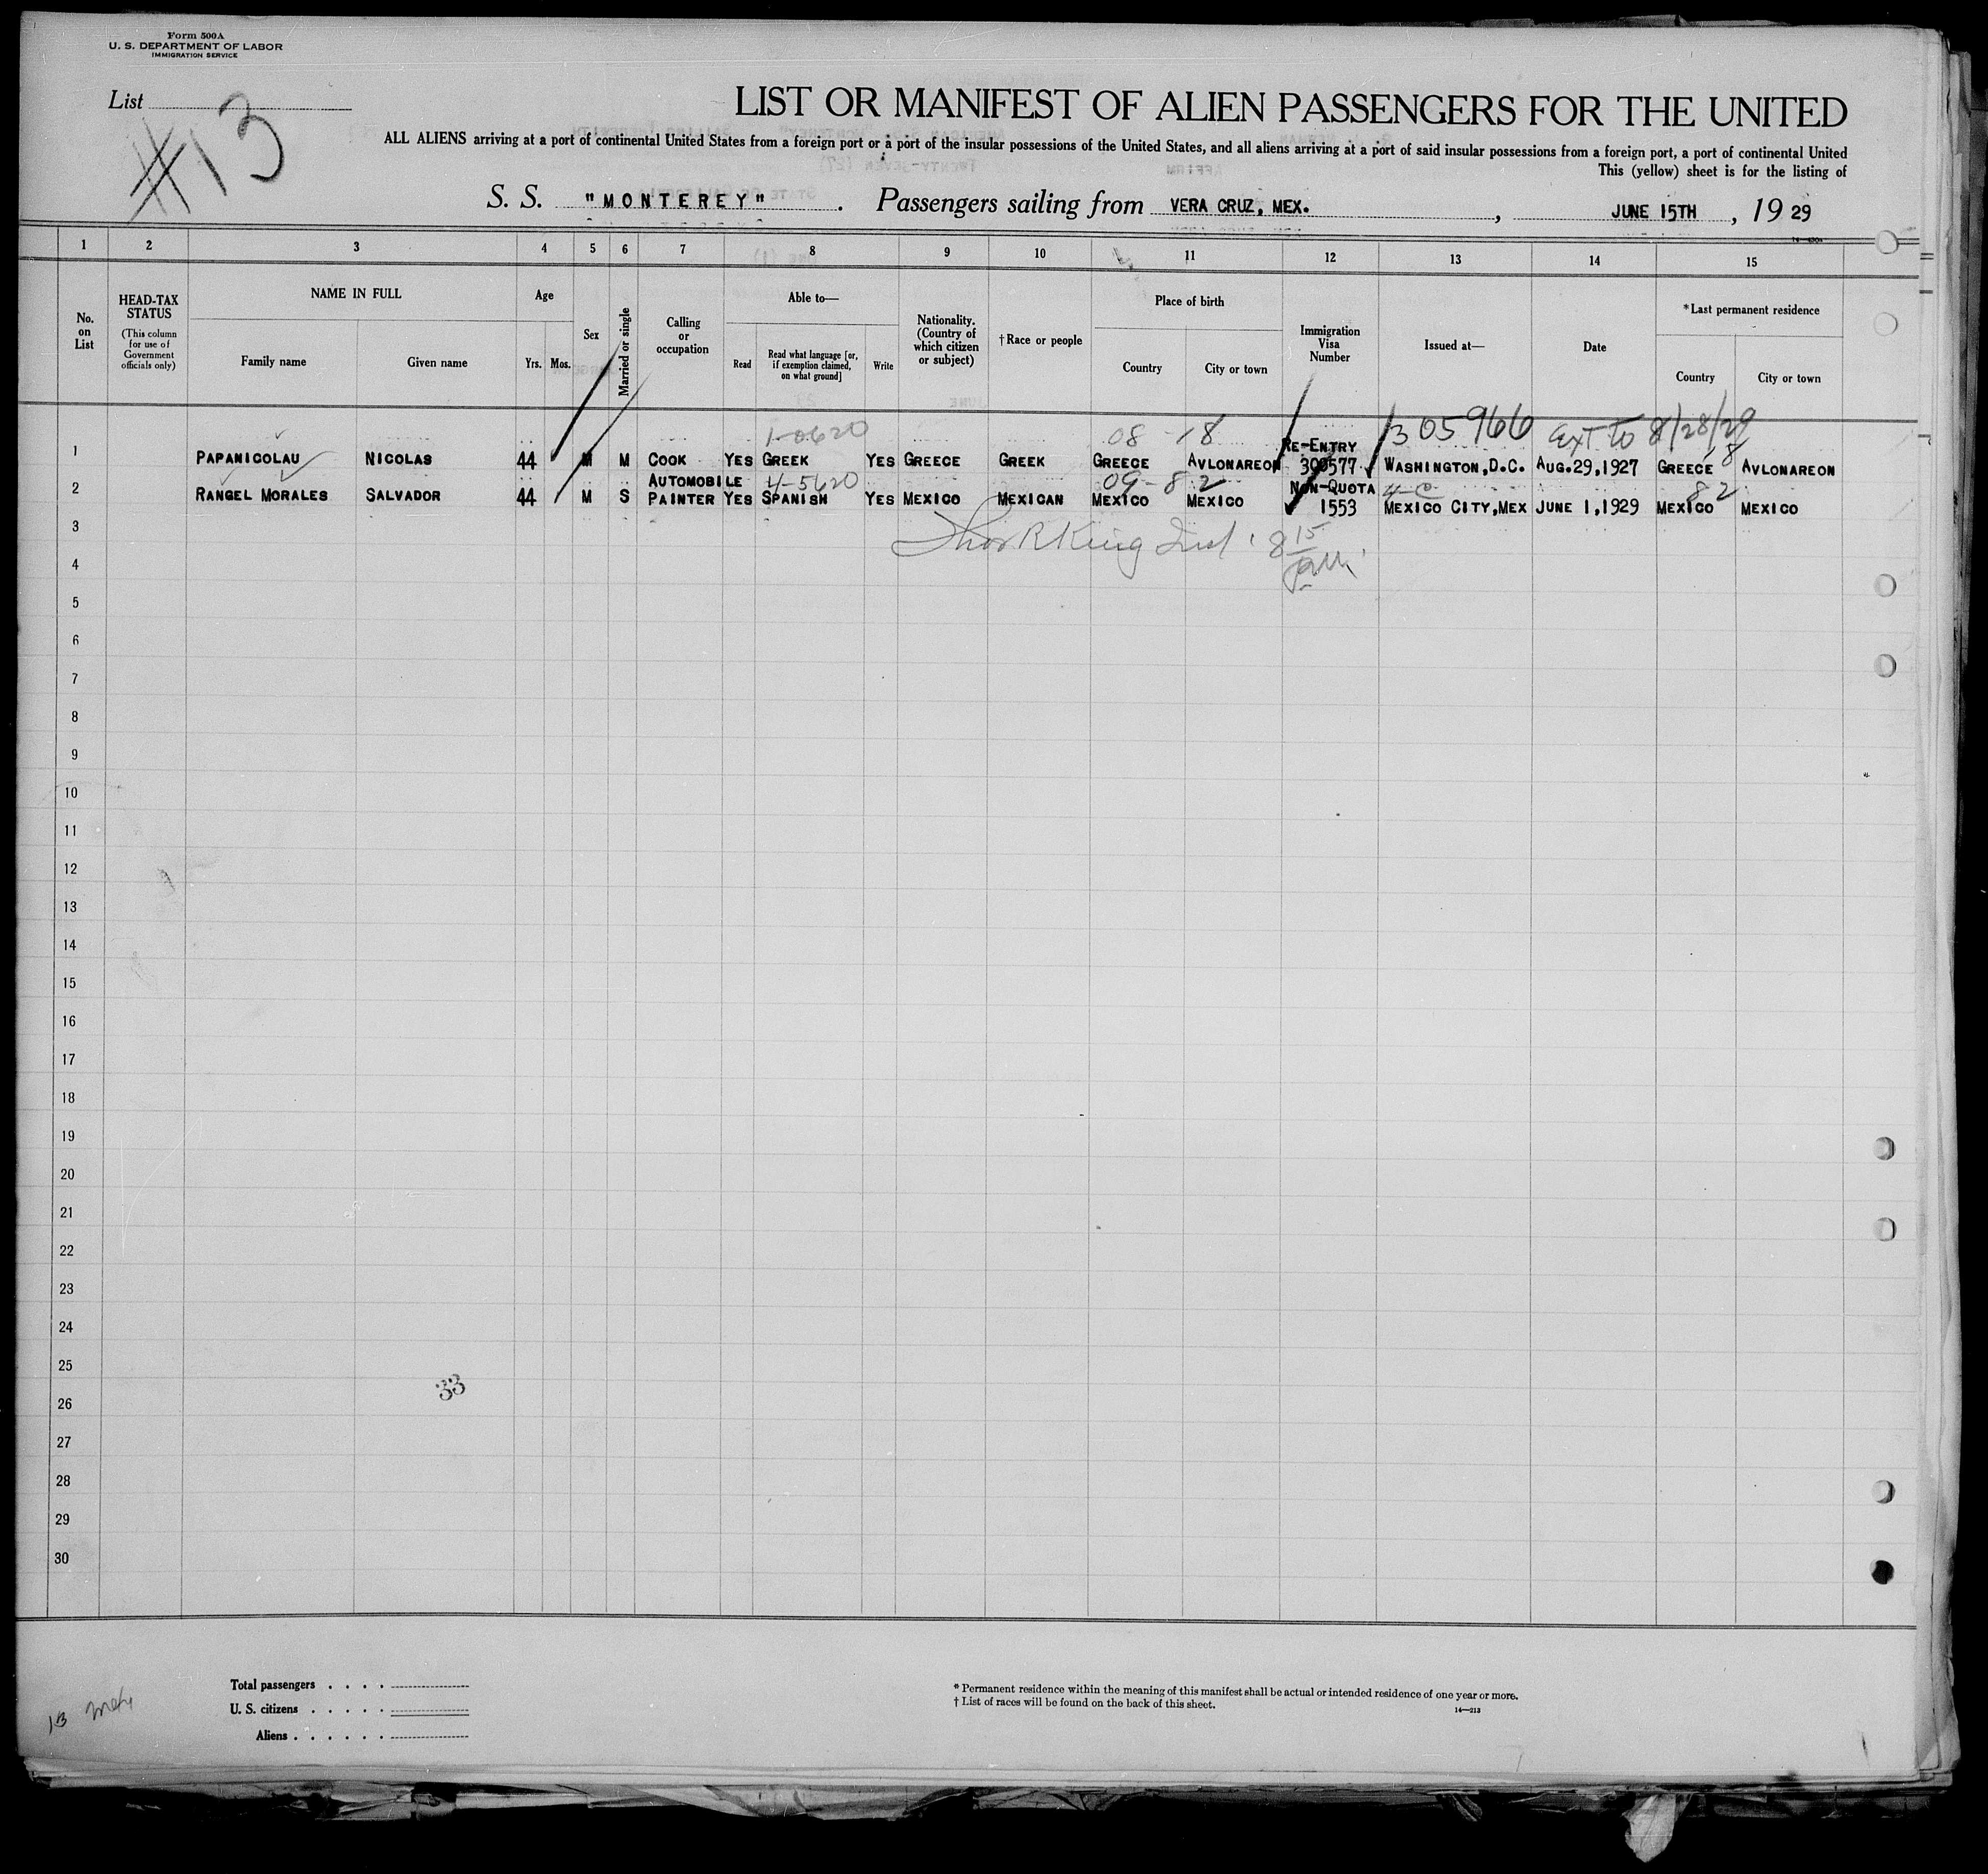 Form 500A
U. S. DEPARTMENT OF LABOR
IMMIGRATION SERVICE
List
#13
LIST OR MANIFEST OF ALIEN PASSENGERS FOR THE UNITED
ALL ALIENS arriving at a port of continental United States from a foreign port or a port of the insular possessions of the United States, and all aliens arriving at a port of said insular possessions from a foreign port, a port of continental United
This (yellow) sheet is for the listing of
S. S. "MONTEREY". Passengers sailing from VERA CRUZ, MEX., JUNE 15TH, 19 29
1 2 3 4 5 6 7 8 9 10 11 12 13 14 15
No. on List
HEAD-TAX STATUS
(This column for use of Government officials only)
NAME IN FULL
Family name
Given name
Age
Yrs. Mos.
Sex
Married or single
Calling or occupation
Able to—
Read
Read what language [or, if exemption claimed, on what ground]
Write
Nationality. (Country of which citizen or subject)
†Race or people
Place of birth
Country
City or town
Immigration Visa Number
Issued at—
Date
*Last permanent residence
Country
City or town
1-0620 08 -18 305966 Ext to 8/28/29
RE-ENTRY 18
1 PAPANICOLAU NICOLAS 44 M M COOK YES GREEK YES GREECE GREEK GREECE AVLONAREON 300577 WASHINGTON,D.C. AUG.29,1927 GREECE AVLONAREON
AUTOMOBILE 4-5620 09-82 NON-QUOTA 4-C 82
2 RANGEL MORALES SALVADOR 44 M S PAINTER YES SPANISH YES MEXICO MEXICAN MEXICO MEXICO 1553 MEXICO CITY,MEX JUNE 1,1929 MEXICO MEXICO
3
4
5
6
7
8
9
10
11
12
13
14
15
16
17
18
19
20
21
22
23
24
25
33
26
27
28
29
30
Total passengers . . . .
U. S. citizens . . . . .
Aliens . . . . . .
* Permanent residence within the meaning of this manifest shall be actual or intended residence of one year or more.
† List of races will be found on the back of this sheet.
14—213